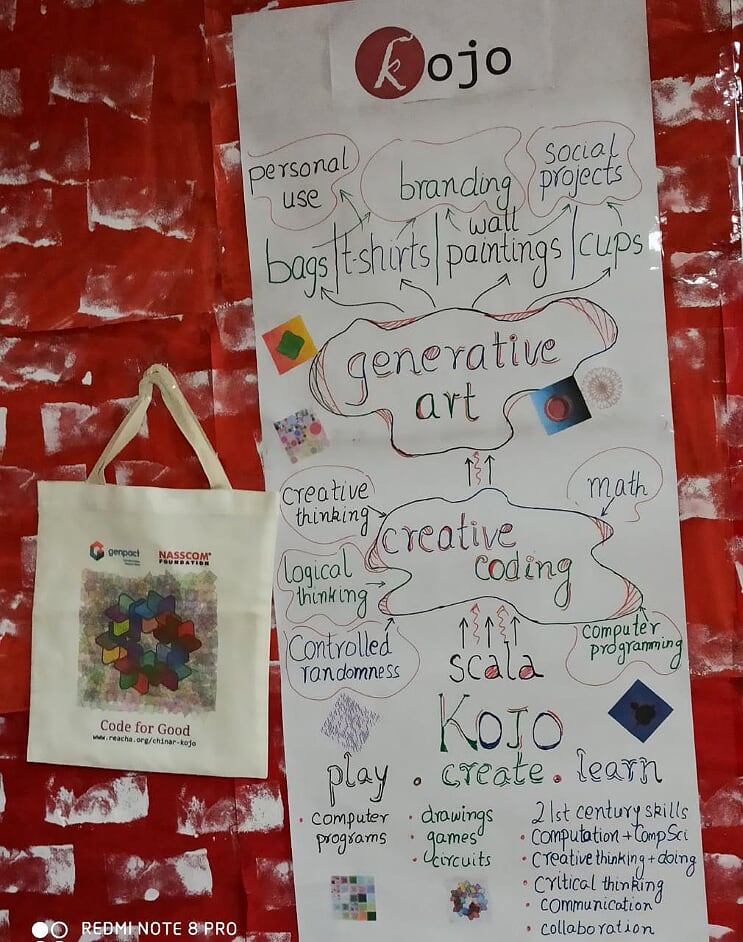 kojo
personal
use
branding
social
projects
bags|t-shirts|wall
paintings|cups
generative
art
creative
thinking
math
creative
coding
logical
thinking
Controlled
randomness
computer
programming
scala
KOJO
play . create . learn
• computer
programs
• drawings
• games
• circuits
21st century skills
• Computation + CompSci
• Creative thinking + doing
• Critical thinking
• communication
• collaboration
genpact
NASSCOM®
FOUNDATION
Code for Good
www.reacha.org/chinar-kojo
REDMI NOTE 8 PRO